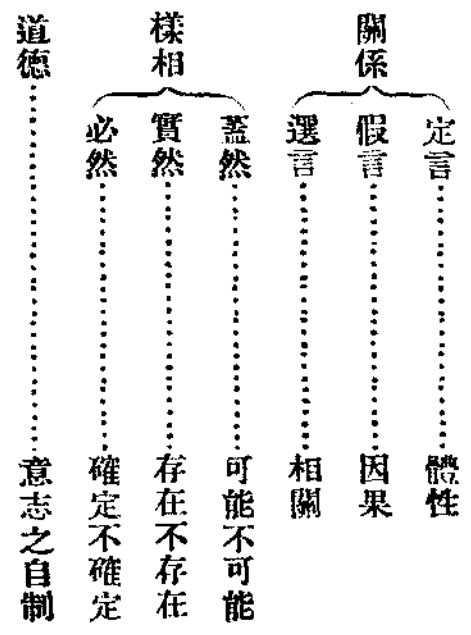 關係
定言………………體性
假言………………因果
選言………………相關
樣相
蓋然………………可能不可能
實然………………存在不存在
必然………………確定不確定
道德………………意志之自制